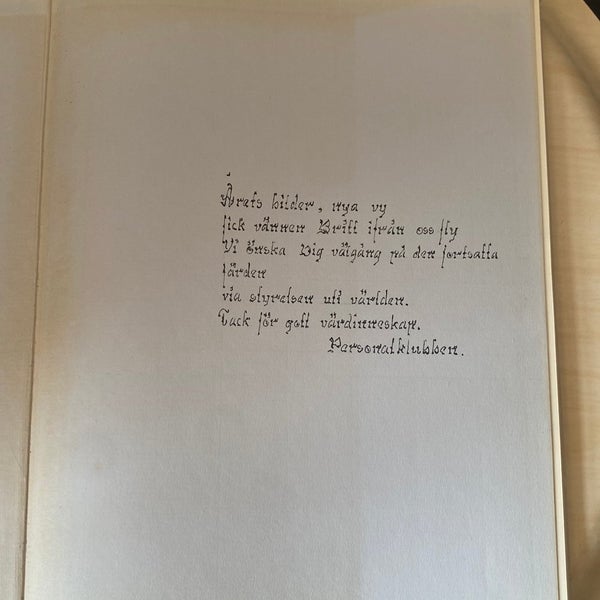 Årets bilder, nya vy
fick vännen Britt ifrån oss fly
Vi önska Dig välgång på den fortsatta
färden
via styrelsen uti världen.
Tack för gott värdinneskap.
Personalklubben.